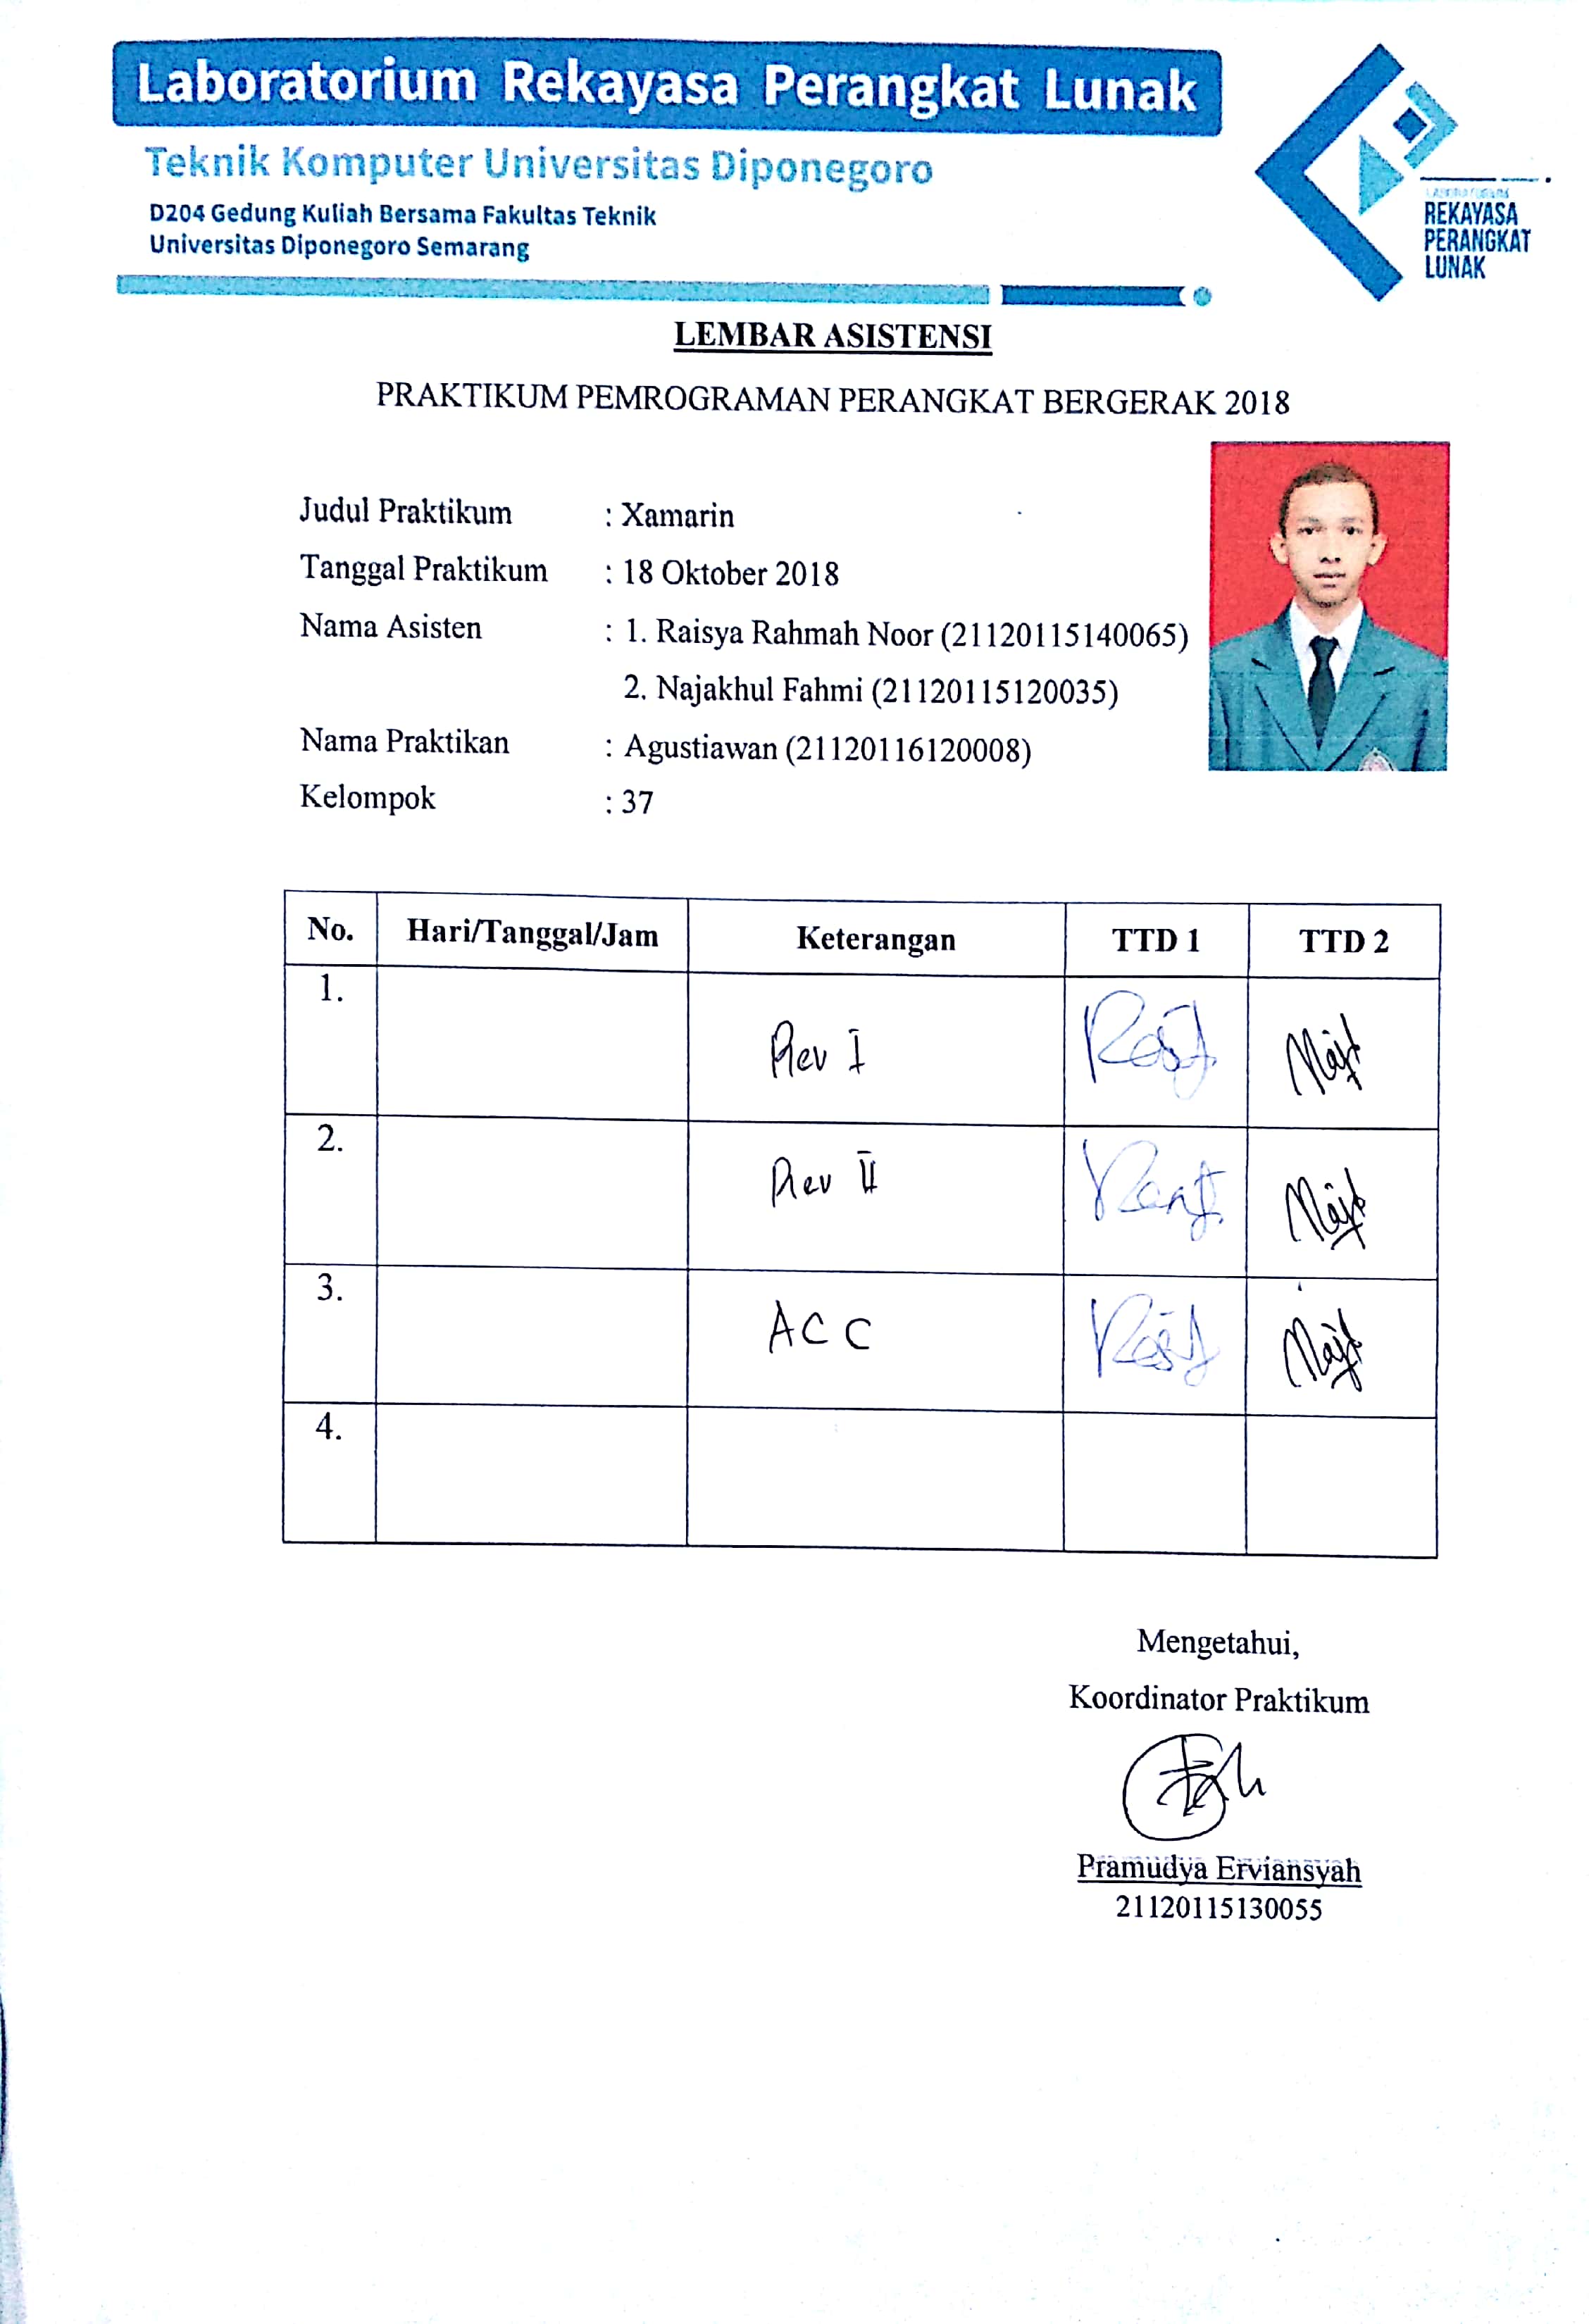 Laboratorium Rekayasa Perangkat Lunak
Teknik Komputer Universitas Diponegoro
D204 Gedung Kuliah Bersama Fakultas Teknik
Universitas Diponegoro Semarang
LABORATORIUM
REKAYASA
PERANGKAT
LUNAK
LEMBAR ASISTENSI
PRAKTIKUM PEMROGRAMAN PERANGKAT BERGERAK 2018
Judul Praktikum : Xamarin
Tanggal Praktikum : 18 Oktober 2018
Nama Asisten : 1. Raisya Rahmah Noor (21120115140065)
2. Najakhul Fahmi (21120115120035)
Nama Praktikan : Agustiawan (21120116120008)
Kelompok : 37
No. Hari/Tanggal/Jam Keterangan TTD 1 TTD 2
1. Rev I
2. Rev II
3. ACC
4.
Mengetahui,
Koordinator Praktikum
Pramudya Erviansyah
21120115130055